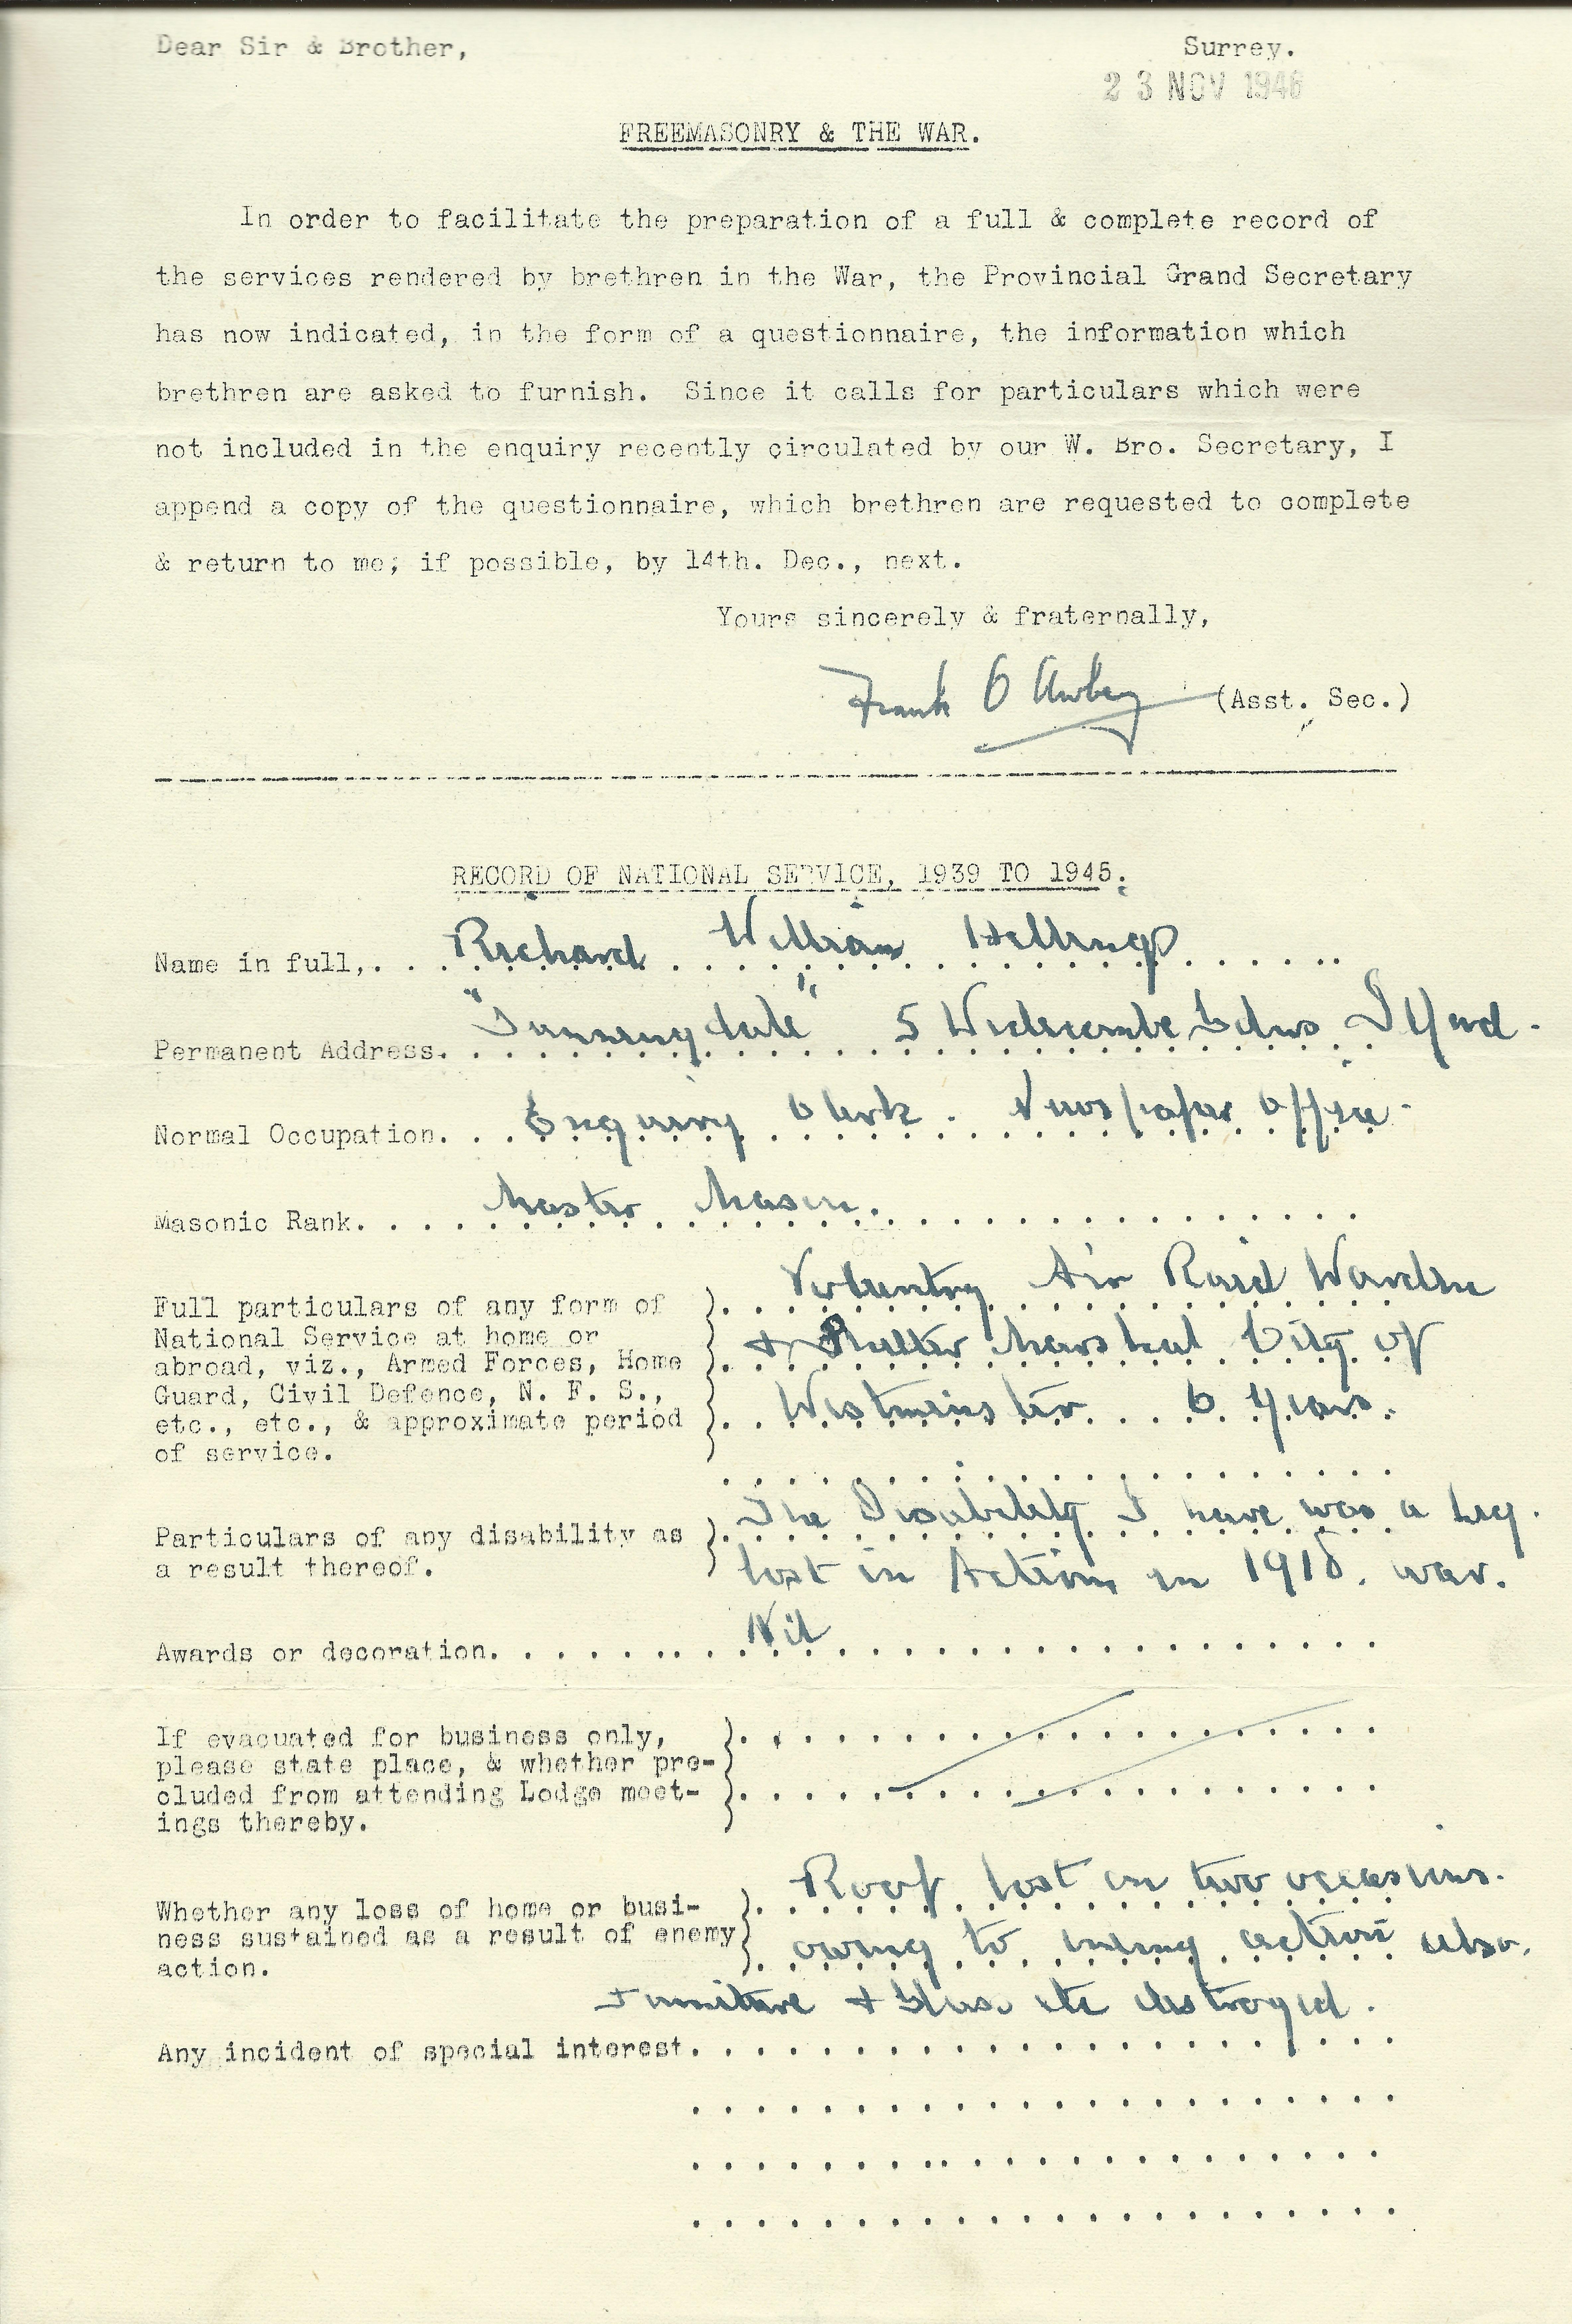 Dear Sir & Brother,
Surrey.
23 NOV 1946
FREEMASONRY & THE WAR.
In order to facilitate the preparation of a full & complete record of
the services rendered by brethren in the War, the Provincial Grand Secretary
has now indicated, in the form of a questionnaire, the information which
brethren are asked to furnish. Since it calls for particulars which were
not included in the enquiry recently circulated by our W. Bro. Secretary, I
append a copy of the questionnaire, which brethren are requested to complete
& return to me; if possible, by 14th. Dec., next.
Yours sincerely & fraternally,
Frank O (Asst. Sec.)
RECORD OF NATIONAL SERVICE, 1939 TO 1945.
Name in full, . . . Richard William
Permanent Address. "Sunningdale" 5 Widecombe Gdns Ilford.
Normal Occupation. . . Enquiry Clerk. Newspaper Office.
Masonic Rank. . . . Master Mason.
Full particulars of any form of
National Service at home or
abroad, viz., Armed Forces, Home
Guard, Civil Defence, N. F. S.,
etc., etc., & approximate period
of service.
Voluntry Air Raid Warden
+ Shelter Marshal City of
Westminster . . 6 Years.
Particulars of any disability as
a result thereof.
The Disability I have was a Leg.
lost in Action in 1918. war.
Awards or decoration. . . . . . . . Nil
If evacuated for business only,
please state place, & whether pre-
cluded from attending Lodge meet-
ings thereby.
Whether any loss of home or busi-
ness sustained as a result of enemy
action.
Roof lost on two occasions.
owing to enemy action also.
Furniture + Glass etc destroyed.
Any incident of special interest.